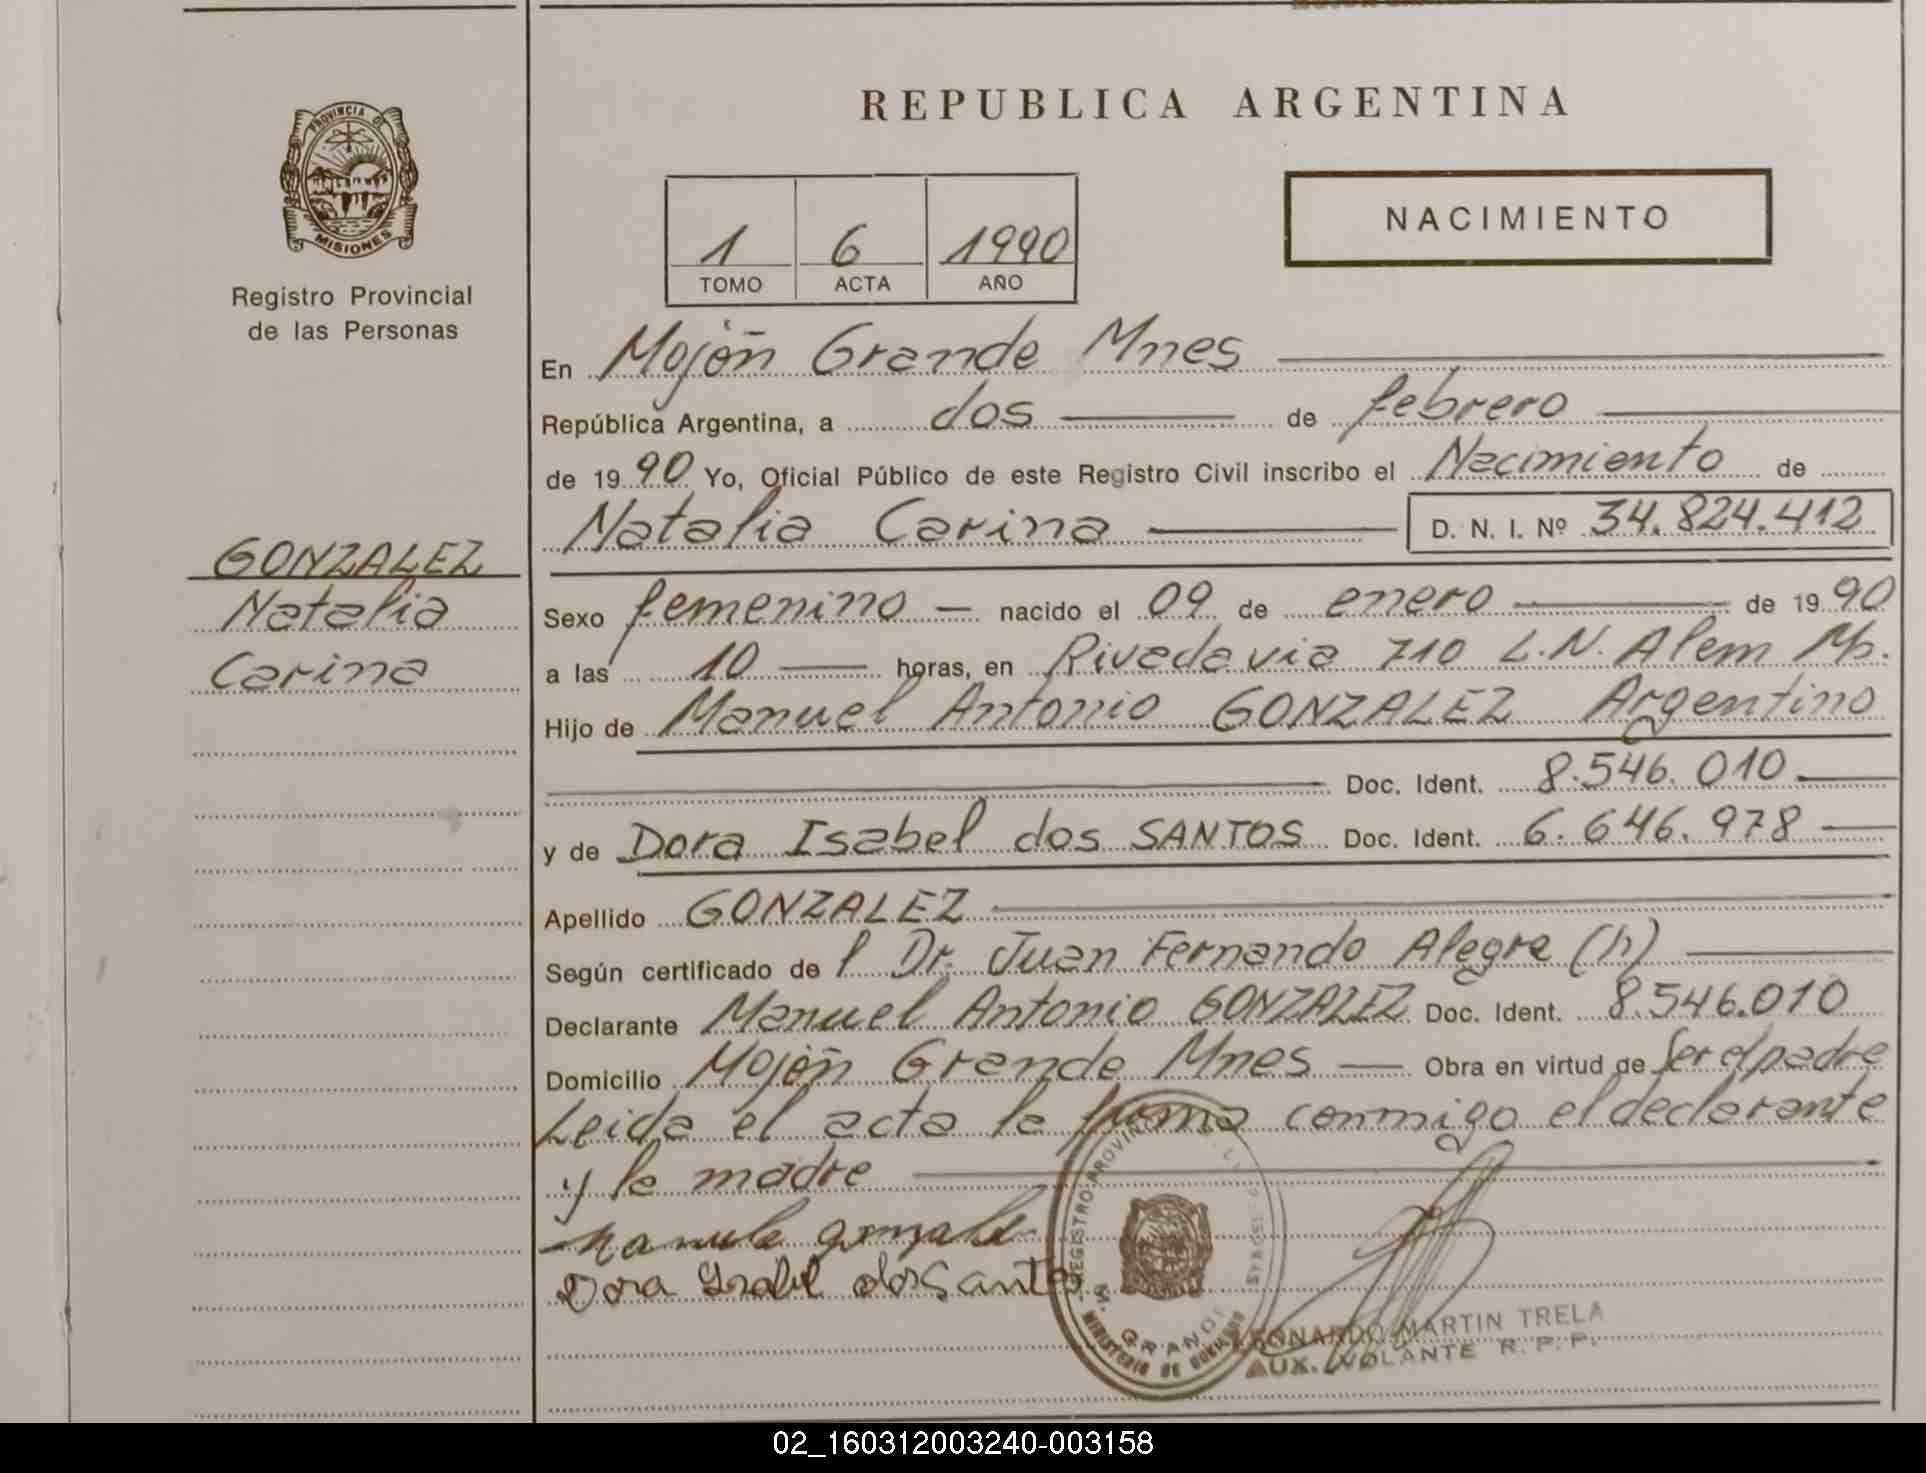 REPUBLICA ARGENTINA
PROVINCIA DE
MISIONES
Registro Provincial
de las Personas
1 6 1990
TOMO ACTA AÑO
NACIMIENTO
En Mojón Grande Mnes
República Argentina, a dos de febrero
de 1990 Yo, Oficial Público de este Registro Civil inscribo el Nacimiento de
Natalia Carina D. N. I. Nº 34.824.412
GONZALEZ
Natalia
Carina
Sexo femenino — nacido el 09 de enero de 1990
a las 10 horas, en Rivadavia 710 L.N. Alem Ms.
Hijo de Manuel Antonio GONZALEZ Argentino
Doc. Ident. 8.546.010
y de Dora Isabel dos SANTOS Doc. Ident. 6.646.978
Apellido GONZALEZ
Según certificado de l Dr. Juan Fernando Alegre (h)
Declarante Manuel Antonio GONZALEZ Doc. Ident. 8.546.010
Domicilio Mojón Grande Mnes — Obra en virtud de Ser el padre
Leida el acta la firma conmigo el declarante
y la madre
Dora Isabel dos Santos
REGISTRO PROVINCIAL
GRANDE
MINISTERIO DE GOBIERNO
LEONARDO MARTIN TRELA
AUX. VOLANTE R. P. P.
02_160312003240-003158